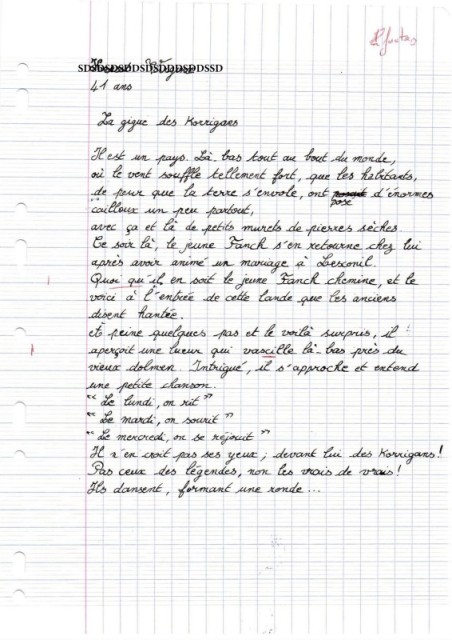 2 fautes
SDSDSDSDDSDSDDDSDDSSD
41 ans
La gigue des Korrigans
Il est un pays. Là bas tout au bout du monde,
où le vent souffle tellement fort, que les habitants,
de peur que la terre s'envole, ont posé d'énormes
cailloux un peu partout,
avec ça et là de petits murets de pierres sèches.
Ce soir là, le jeune Fanch s'en retourne chez lui
après avoir animé un mariage à Lesconil.
Quoi qu'il en soit le jeune Fanch chemine, et le
voici à l'entrée de cette lande que les anciens
disent hantée.
A peine quelques pas et le voilà surpris, il
aperçoit une lueur qui vascille là-bas près du
vieux dolmen. Intrigué, il s'approche et entend
une petite chanson.
"Le lundi, on rit"
"Le mardi, on sourit"
"Le mercredi, on se réjouit"
Il n'en croit pas ses yeux ; devant lui des Korrigans !
Pas ceux des légendes, non les vrais de vrais !
Ils dansent, formant une ronde ...